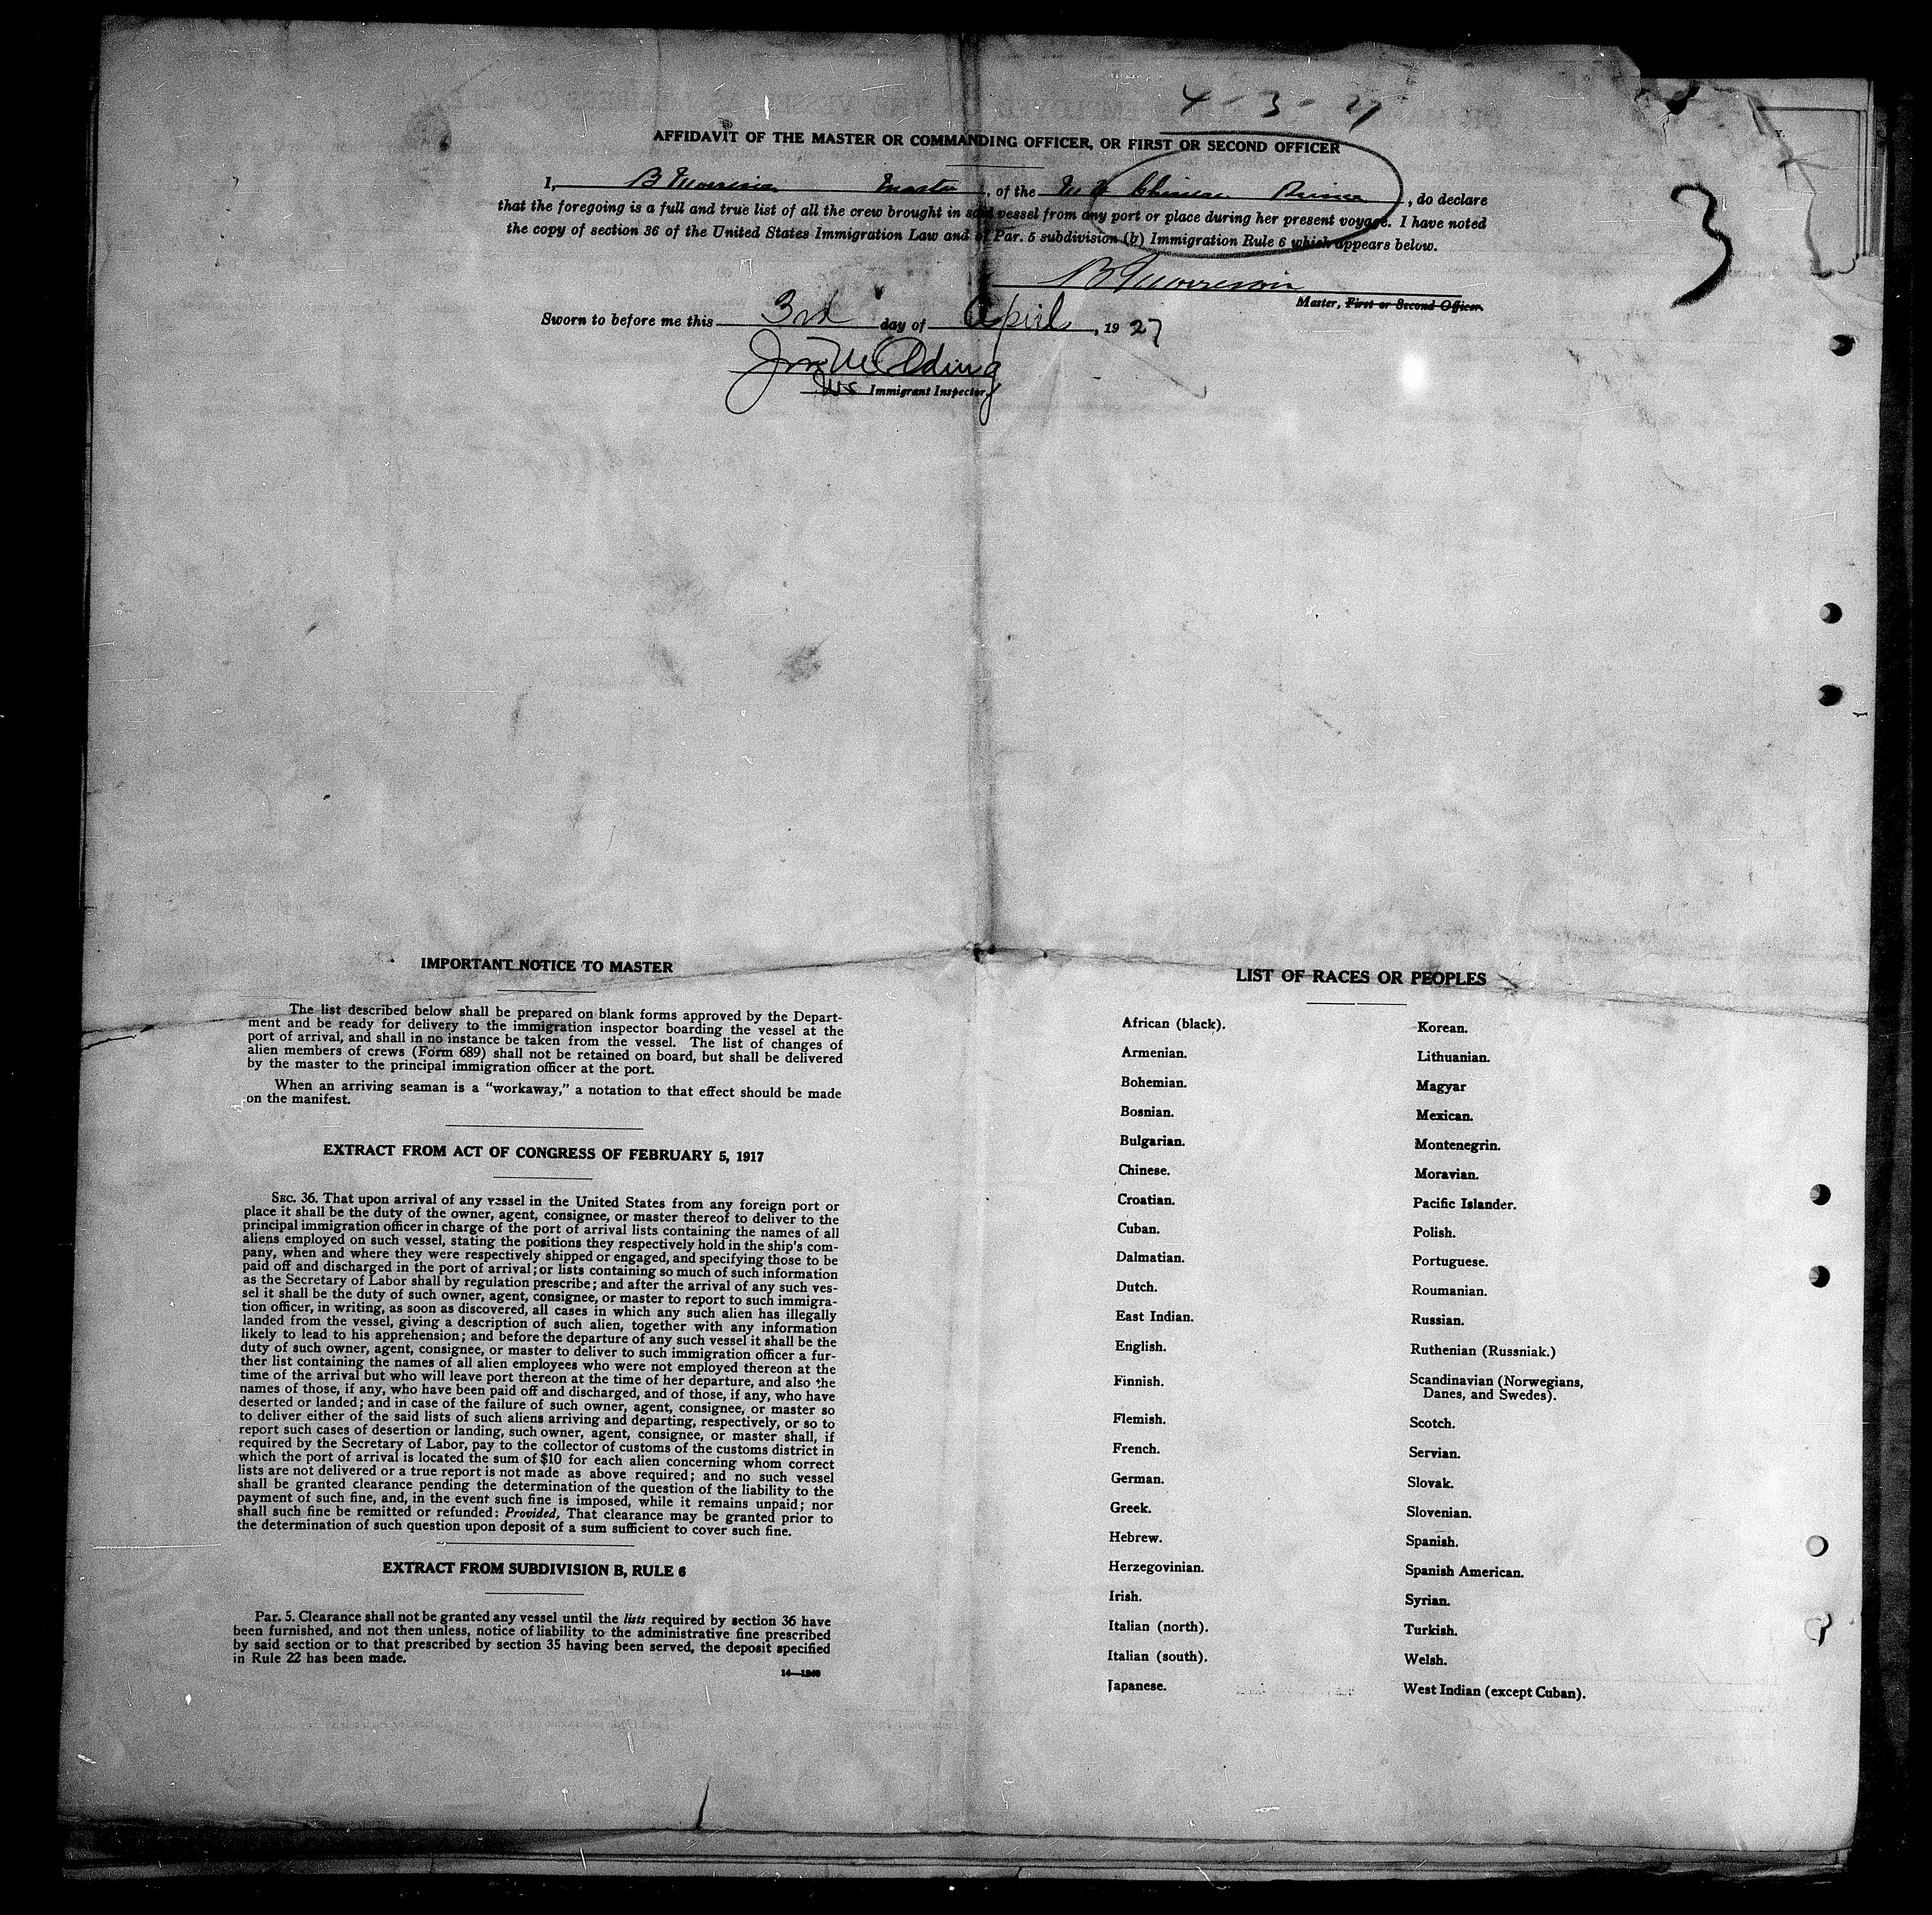 4-3-27
AFFIDAVIT OF THE MASTER OR COMMANDING OFFICER, OR FIRST OR SECOND OFFICER
I, B Morrison Master, of the M V Chinese Prince, do declare
that the foregoing is a full and true list of all the crew brought in said vessel from any port or place during her present voyage. I have noted
the copy of section 36 of the United States Immigration Law and of Par. 5 subdivision (b) Immigration Rule 6 which appears below.
3
B Morrison
Master, First or Second Officer.
Sworn to before me this 3rd day of April, 1927
US Immigrant Inspector.
IMPORTANT NOTICE TO MASTER
The list described below shall be prepared on blank forms approved by the Depart-
ment and be ready for delivery to the immigration inspector boarding the vessel at the
port of arrival, and shall in no instance be taken from the vessel. The list of changes of
alien members of crews (Form 689) shall not be retained on board, but shall be delivered
by the master to the principal immigration officer at the port.
When an arriving seaman is a “workaway,” a notation to that effect should be made
on the manifest.
EXTRACT FROM ACT OF CONGRESS OF FEBRUARY 5, 1917
SEC. 36. That upon arrival of any vessel in the United States from any foreign port or
place it shall be the duty of the owner, agent, consignee, or master thereof to deliver to the
principal immigration officer in charge of the port of arrival lists containing the names of all
aliens employed on such vessel, stating the positions they respectively hold in the ship's com-
pany, when and where they were respectively shipped or engaged, and specifying those to be
paid off and discharged in the port of arrival; or lists containing so much of such information
as the Secretary of Labor shall by regulation prescribe; and after the arrival of any such ves-
sel it shall be the duty of such owner, agent, consignee, or master to report to such immigra-
tion officer, in writing, as soon as discovered, all cases in which any such alien has illegally
landed from the vessel, giving a description of such alien, together with any information
likely to lead to his apprehension; and before the departure of any such vessel it shall be the
duty of such owner, agent, consignee, or master to deliver to such immigration officer a fur-
ther list containing the names of all alien employees who were not employed thereon at the
time of the arrival but who will leave port thereon at the time of her departure, and also the
names of those, if any, who have been paid off and discharged, and of those, if any, who have
deserted or landed; and in case of the failure of such owner, agent, consignee, or master so
to deliver either of the said lists of such aliens arriving and departing, respectively, or so to
report such cases of desertion or landing, such owner, agent, consignee, or master shall, if
required by the Secretary of Labor, pay to the collector of customs of the customs district in
which the port of arrival is located the sum of $10 for each alien concerning whom correct
lists are not delivered or a true report is not made as above required; and no such vessel
shall be granted clearance pending the determination of the question of the liability to the
payment of such fine, and, in the event such fine is imposed, while it remains unpaid; nor
shall such fine be remitted or refunded: Provided, That clearance may be granted prior to
the determination of such question upon deposit of a sum sufficient to cover such fine.
EXTRACT FROM SUBDIVISION B, RULE 6
Par. 5. Clearance shall not be granted any vessel until the lists required by section 36 have
been furnished, and not then unless, notice of liability to the administrative fine prescribed
by said section or to that prescribed by section 35 having been served, the deposit specified
in Rule 22 has been made.
LIST OF RACES OR PEOPLES
African (black).
Armenian.
Bohemian.
Bosnian.
Bulgarian.
Chinese.
Croatian.
Cuban.
Dalmatian.
Dutch.
East Indian.
English.
Finnish.
Flemish.
French.
German.
Greek.
Hebrew.
Herzegovinian.
Irish.
Italian (north).
Italian (south).
Japanese.
Korean.
Lithuanian.
Magyar
Mexican.
Montenegrin.
Moravian.
Pacific Islander.
Polish.
Portuguese.
Roumanian.
Russian.
Ruthenian (Russniak.)
Scandinavian (Norwegians,
Danes, and Swedes).
Scotch.
Servian.
Slovak.
Slovenian.
Spanish.
Spanish American.
Syrian.
Turkish.
Welsh.
West Indian (except Cuban).